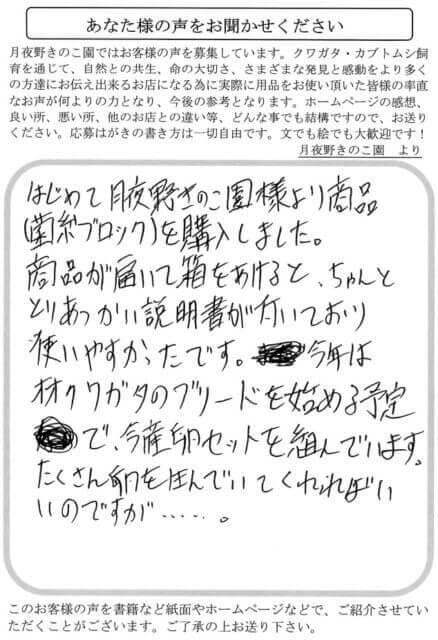 あなた様の声をお聞かせください
月夜野きのこ園ではお客様の声を募集しています。クワガタ・カブトムシ飼
育を通じて、自然との共生、命の大切さ、さまざまな発見と感動をより多く
の方達にお伝え出来るお店になる為に実際に用品をお使い頂いた皆様の率直
なお声が何よりの力となり、今後の参考となります。ホームページの感想、
良い所、悪い所、他のお店との違い等、どんな事でも結構ですので、お送り
ください。応募はがきの書き方は一切自由です。文でも絵でも大歓迎です！
月夜野きのこ園　より
はじめて月夜野きのこ園様より商品
(菌糸ブロック)を購入しました。
商品が届いて箱をあけると、ちゃんと
とりあつかい説明書が付いており
使いやすかったです。今年は
オオクワガタのブリードを始める予定
で、今産卵セットを組んでいます。
たくさん卵を生んでいてくれればい
いのですが……。
このお客様の声を書籍など紙面やホームページなどで、ご紹介させてい
ただくことがございます。ご了承の上お送り下さい。